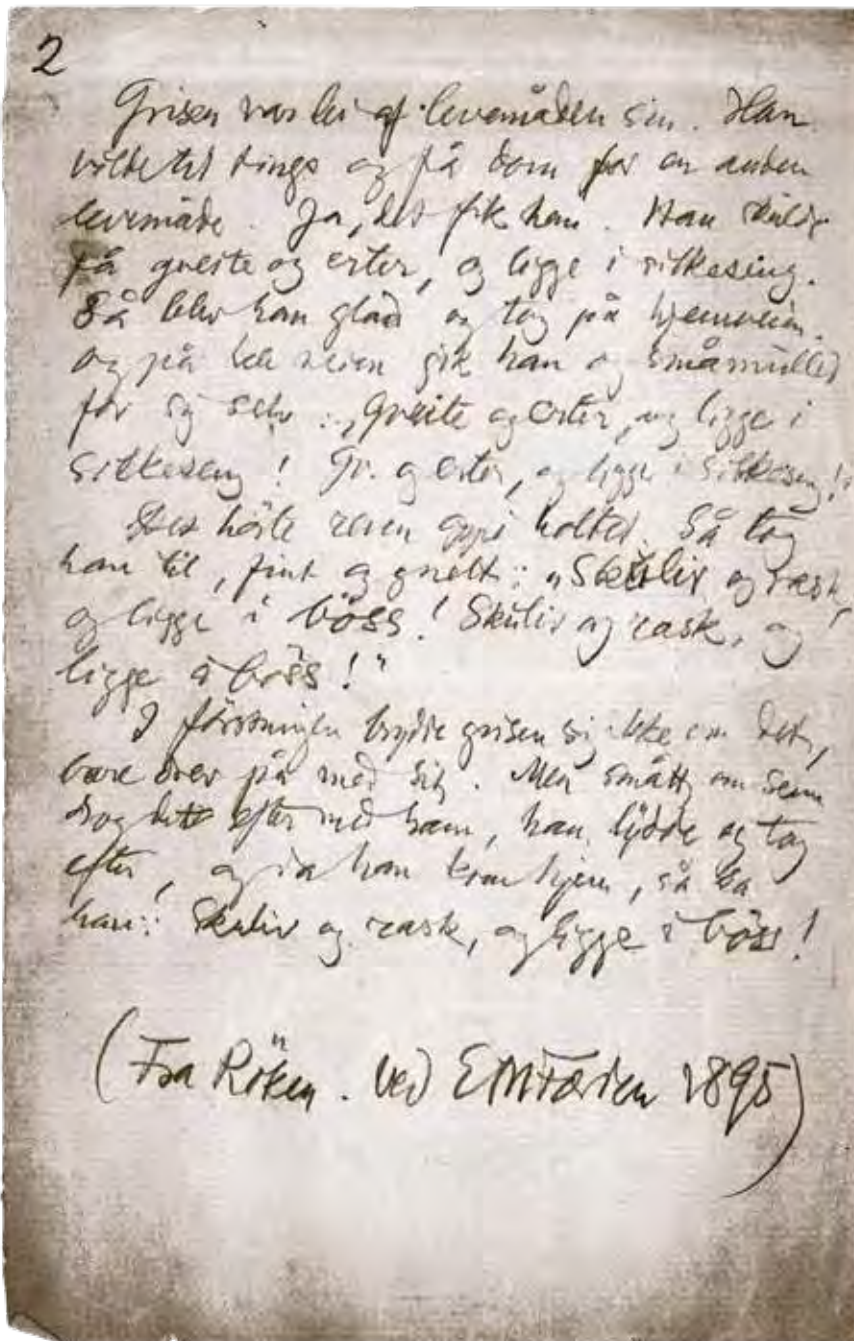 2
Grisen var lei af levemåden sin. Han
vilde til tings og få dom for en anden
levemåde. Ja, det fik han. Han skulde
få qveite og erter, og ligge i silkeseng.
Så blev han glad og tog på hjemveien.
og på hele veien gik han og småmulled
for sig selv: „Qveite og erter, og ligge i
silkeseng! Qv. og erter, og ligge i silkeseng!"
Det hörte reven oppi holtet. Så tog
han til, fint og gnelt: „Skuliv og rask,
og ligge i böss! Skuliv og rask, og
ligge i böss!"
I förstningen brydde grisen sig ikke om det,
bare drev på med sit. Men smått om senn
drog det efter med ham, han lydde og tog
efter, og da han kom hjem, så sa
han: Skuliv og rask, og ligge i böss!
(Fra Röken. Ved E M Færden 1895)